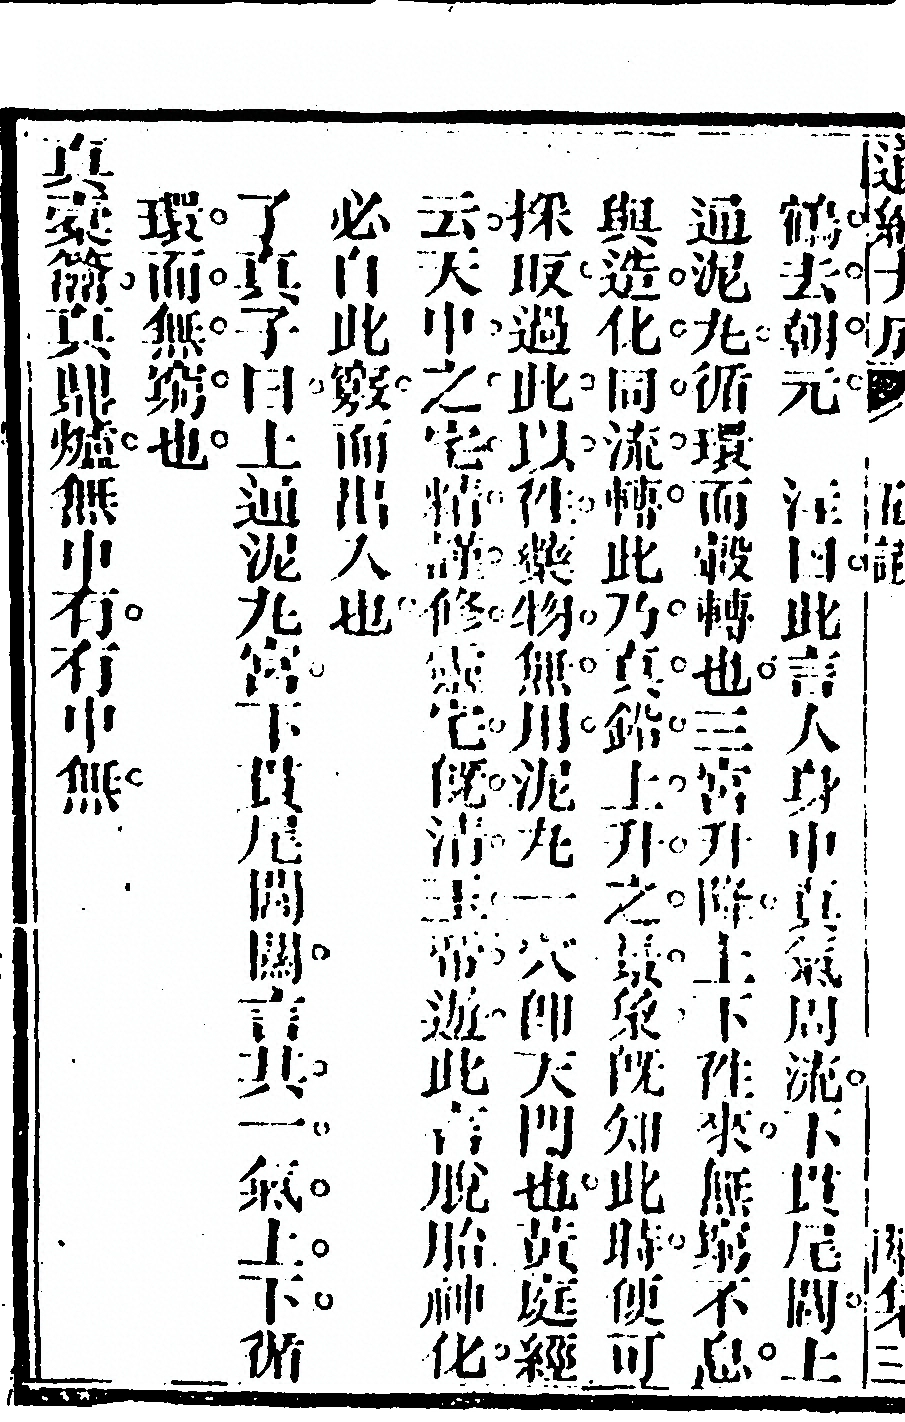 鶴去朝元　注曰此言人身中真氣周流下貫尾閭上
通泥丸循環而轂轉也三宮升降上下徃來無窮不息
與造化同流轉此乃真鉛上升之景象既知此時便可
採取過此以徃藥物無用泥丸一穴卽天門也黃庭經
云天中之宅精謹修靈宅既清玉帝遊此言脫胎神化
必自此竅而出入也
了真子曰上通泥丸宮下貫尾閭關言其一氣上下循
環而無窮也
真橐籥真鼎爐無中有有中無